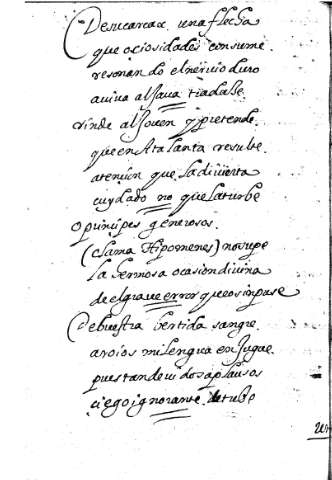 Desucarcax una flecha
que ociosidades consume
resonando el nervio duro
aviva al Java
rinde al Joven y pretende
que en Atalanta resulte
atencion que la divierta
cuydado no que la turbe
O principes generosos
(clama Hipomenes) no
la hermosa ocasion divina
de el grave error que os
De buestra bertida sangre
aroios mi lengua en Jugue
pues tan devidos aplausos
ciego ignorante detube